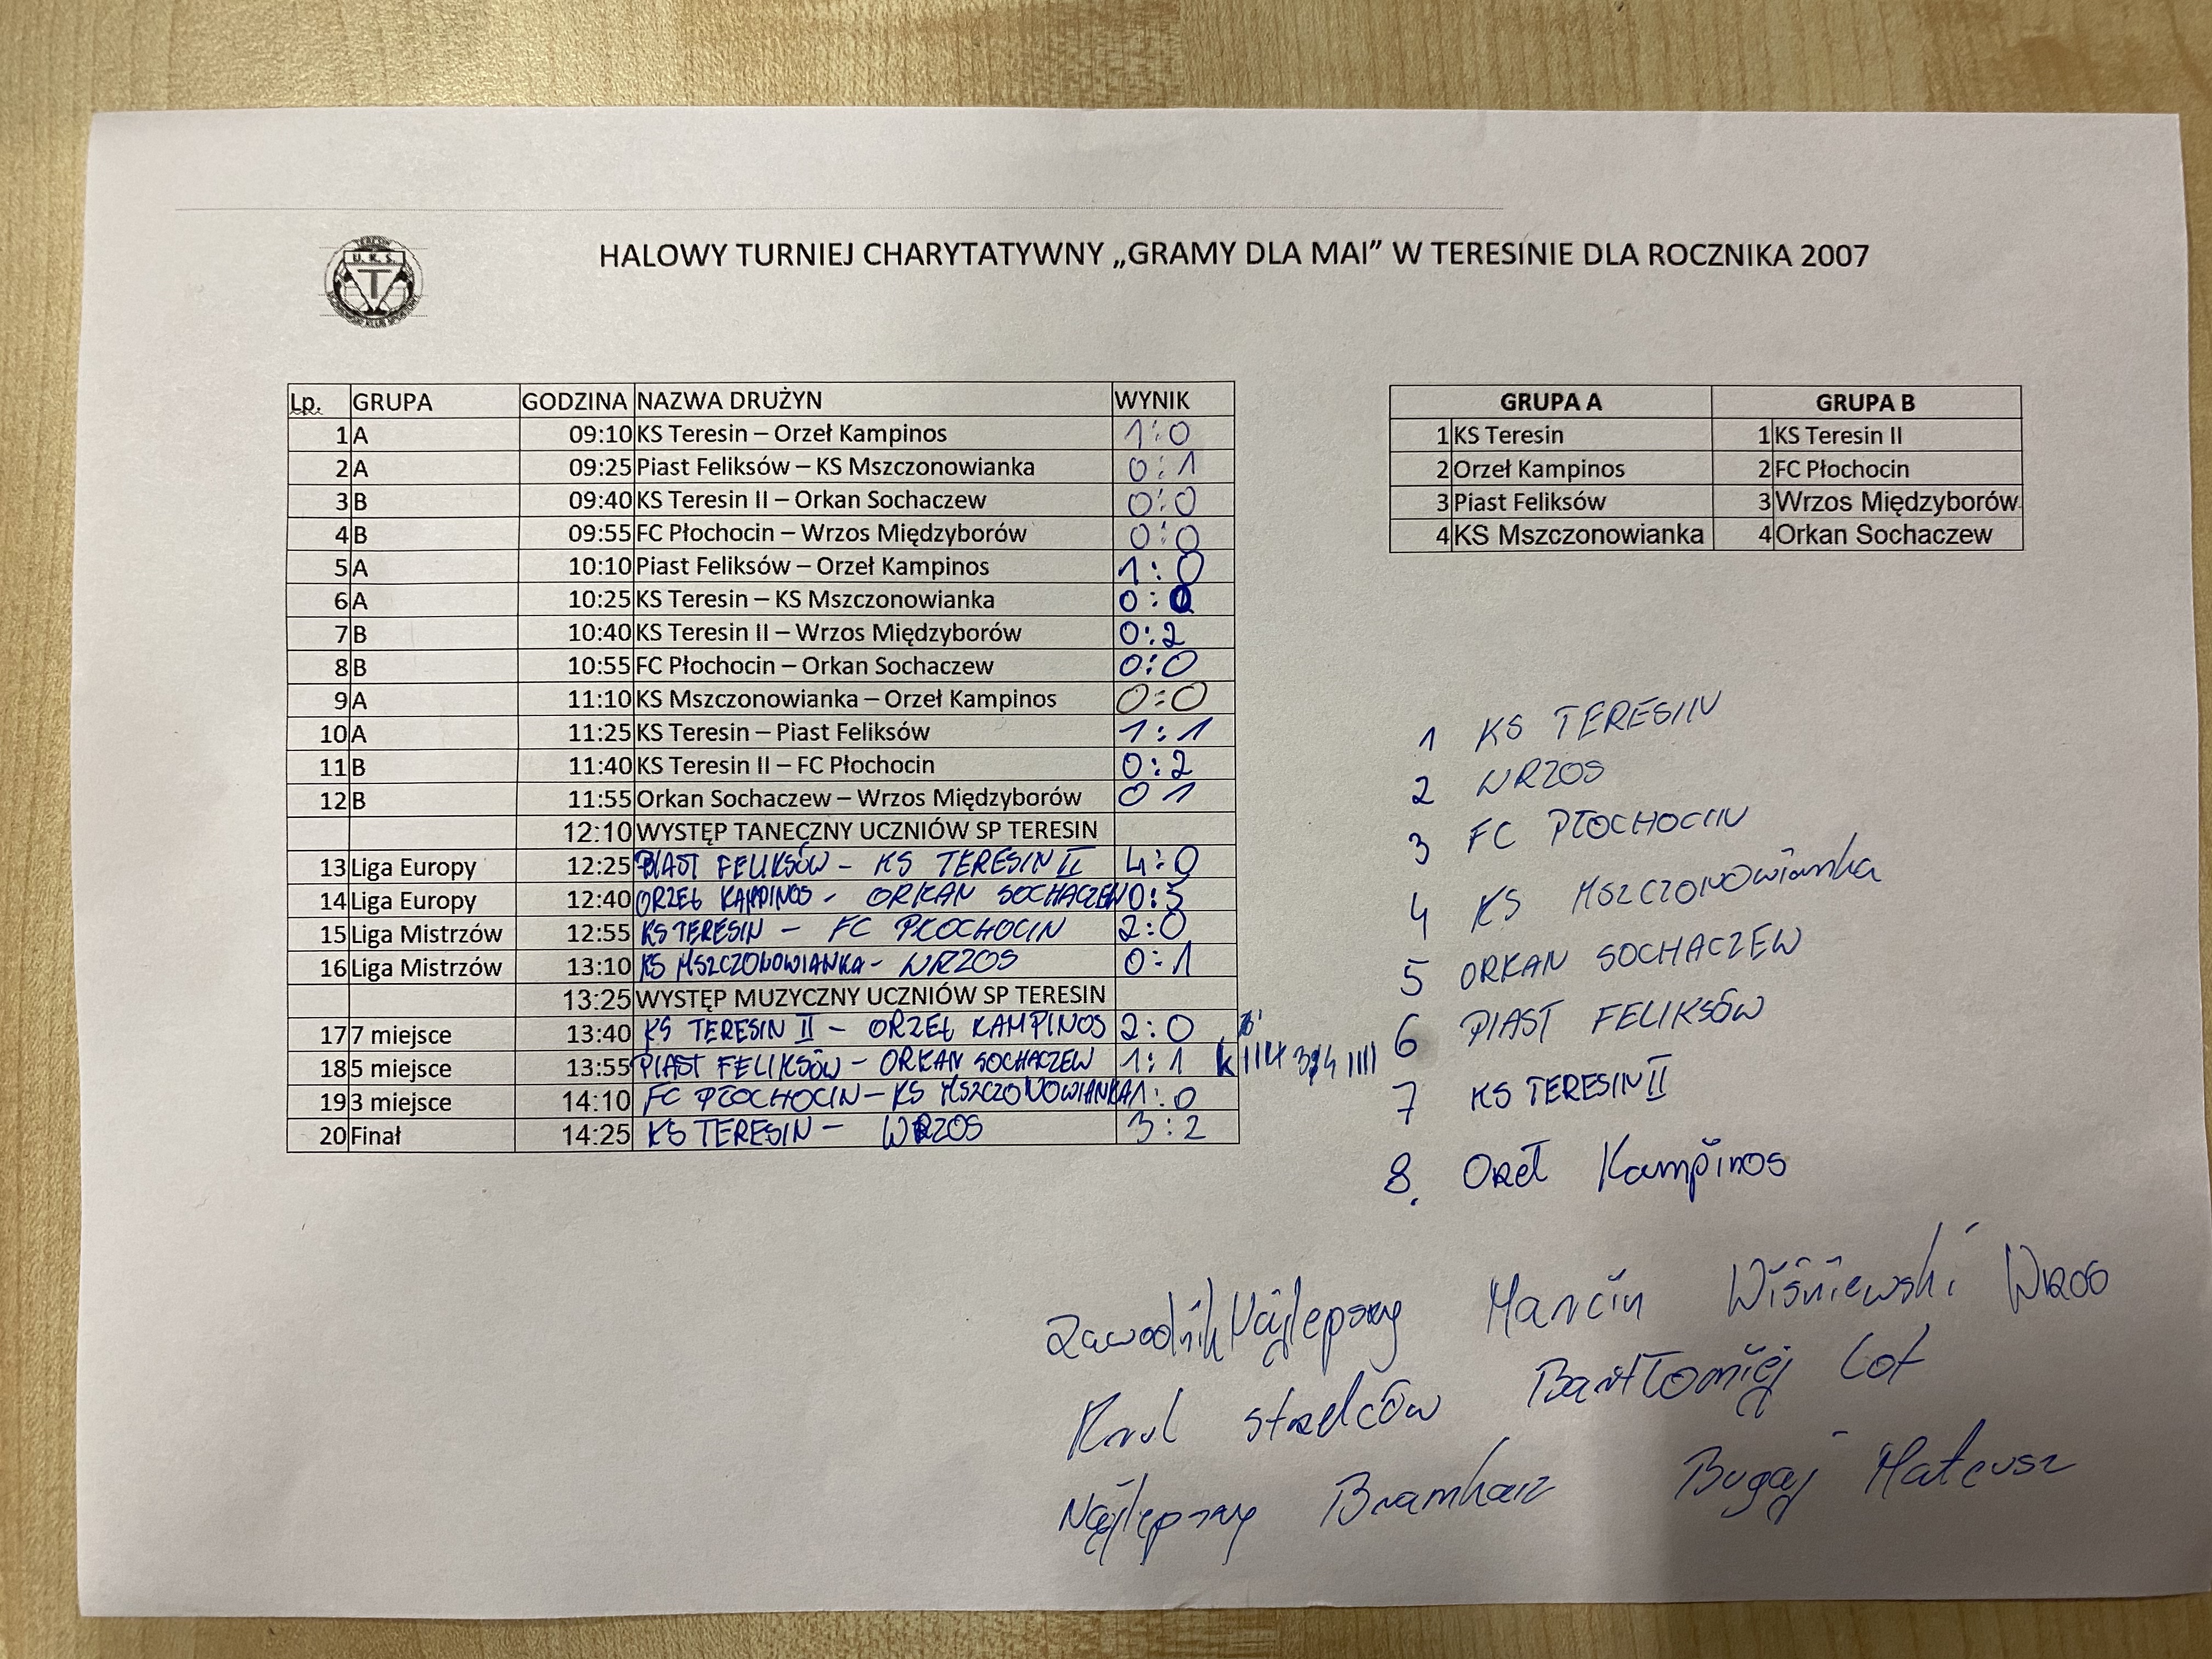 HALOWY TURNIEJ CHARYTATYWNY „GRAMY DLA MAI” W TERESINIE DLA ROCZNIKA 2007
TERESIN
U.K.S.
T
Lp. GRUPA GODZINA NAZWA DRUŻYN WYNIK
1 A 09:10 KS Teresin – Orzeł Kampinos 1:0
2 A 09:25 Piast Feliksów – KS Mszczonowianka 0:1
3 B 09:40 KS Teresin II – Orkan Sochaczew 0:0
4 B 09:55 FC Płochocin – Wrzos Międzyborów 0:0
5 A 10:10 Piast Feliksów – Orzeł Kampinos 1:0
6 A 10:25 KS Teresin – KS Mszczonowianka 0:0
7 B 10:40 KS Teresin II – Wrzos Międzyborów 0:2
8 B 10:55 FC Płochocin – Orkan Sochaczew 0:0
9 A 11:10 KS Mszczonowianka – Orzeł Kampinos 0:0
10 A 11:25 KS Teresin – Piast Feliksów 1:1
11 B 11:40 KS Teresin II – FC Płochocin 0:2
12 B 11:55 Orkan Sochaczew – Wrzos Międzyborów 0 1
12:10 WYSTĘP TANECZNY UCZNIÓW SP TERESIN
13 Liga Europy 12:25 PIAST FELIKSÓW – KS TERESIN II 4:0
14 Liga Europy 12:40 ORZEŁ KAMPINOS – ORKAN SOCHACZEW 0:5
15 Liga Mistrzów 12:55 KS TERESIN – FC PŁOCHOCIN 2:0
16 Liga Mistrzów 13:10 KS MSZCZONOWIANKA – WRZOS 0:1
13:25 WYSTĘP MUZYCZNY UCZNIÓW SP TERESIN
17 7 miejsce 13:40 KS TERESIN II – ORZEŁ KAMPINOS 2:0
18 5 miejsce 13:55 PIAST FELIKSÓW – ORKAN SOCHACZEW 1:1 k
19 3 miejsce 14:10 FC PŁOCHOCIN – KS MSZCZONOWIANKA 1:0
20 Finał 14:25 KS TERESIN – WRZOS 3:2
GRUPA A GRUPA B
1 KS Teresin 1 KS Teresin II
2 Orzeł Kampinos 2 FC Płochocin
3 Piast Feliksów 3 Wrzos Międzyborów
4 KS Mszczonowianka 4 Orkan Sochaczew
1 KS TERESIN
2 WRZOS
3 FC PŁOCHOCIN
4 KS MSZCZONOWianka
5 ORKAN SOCHACZEW
6 PIAST FELIKSÓW
7 KS TERESIN II
8. Orzeł Kampinos
Zawodnik Najlepszy Marcin Wiśniewski Wrzos
Krul strzelców Bartłomiej Cot
Najlepszy Bramkarz Bugaj Mateusz